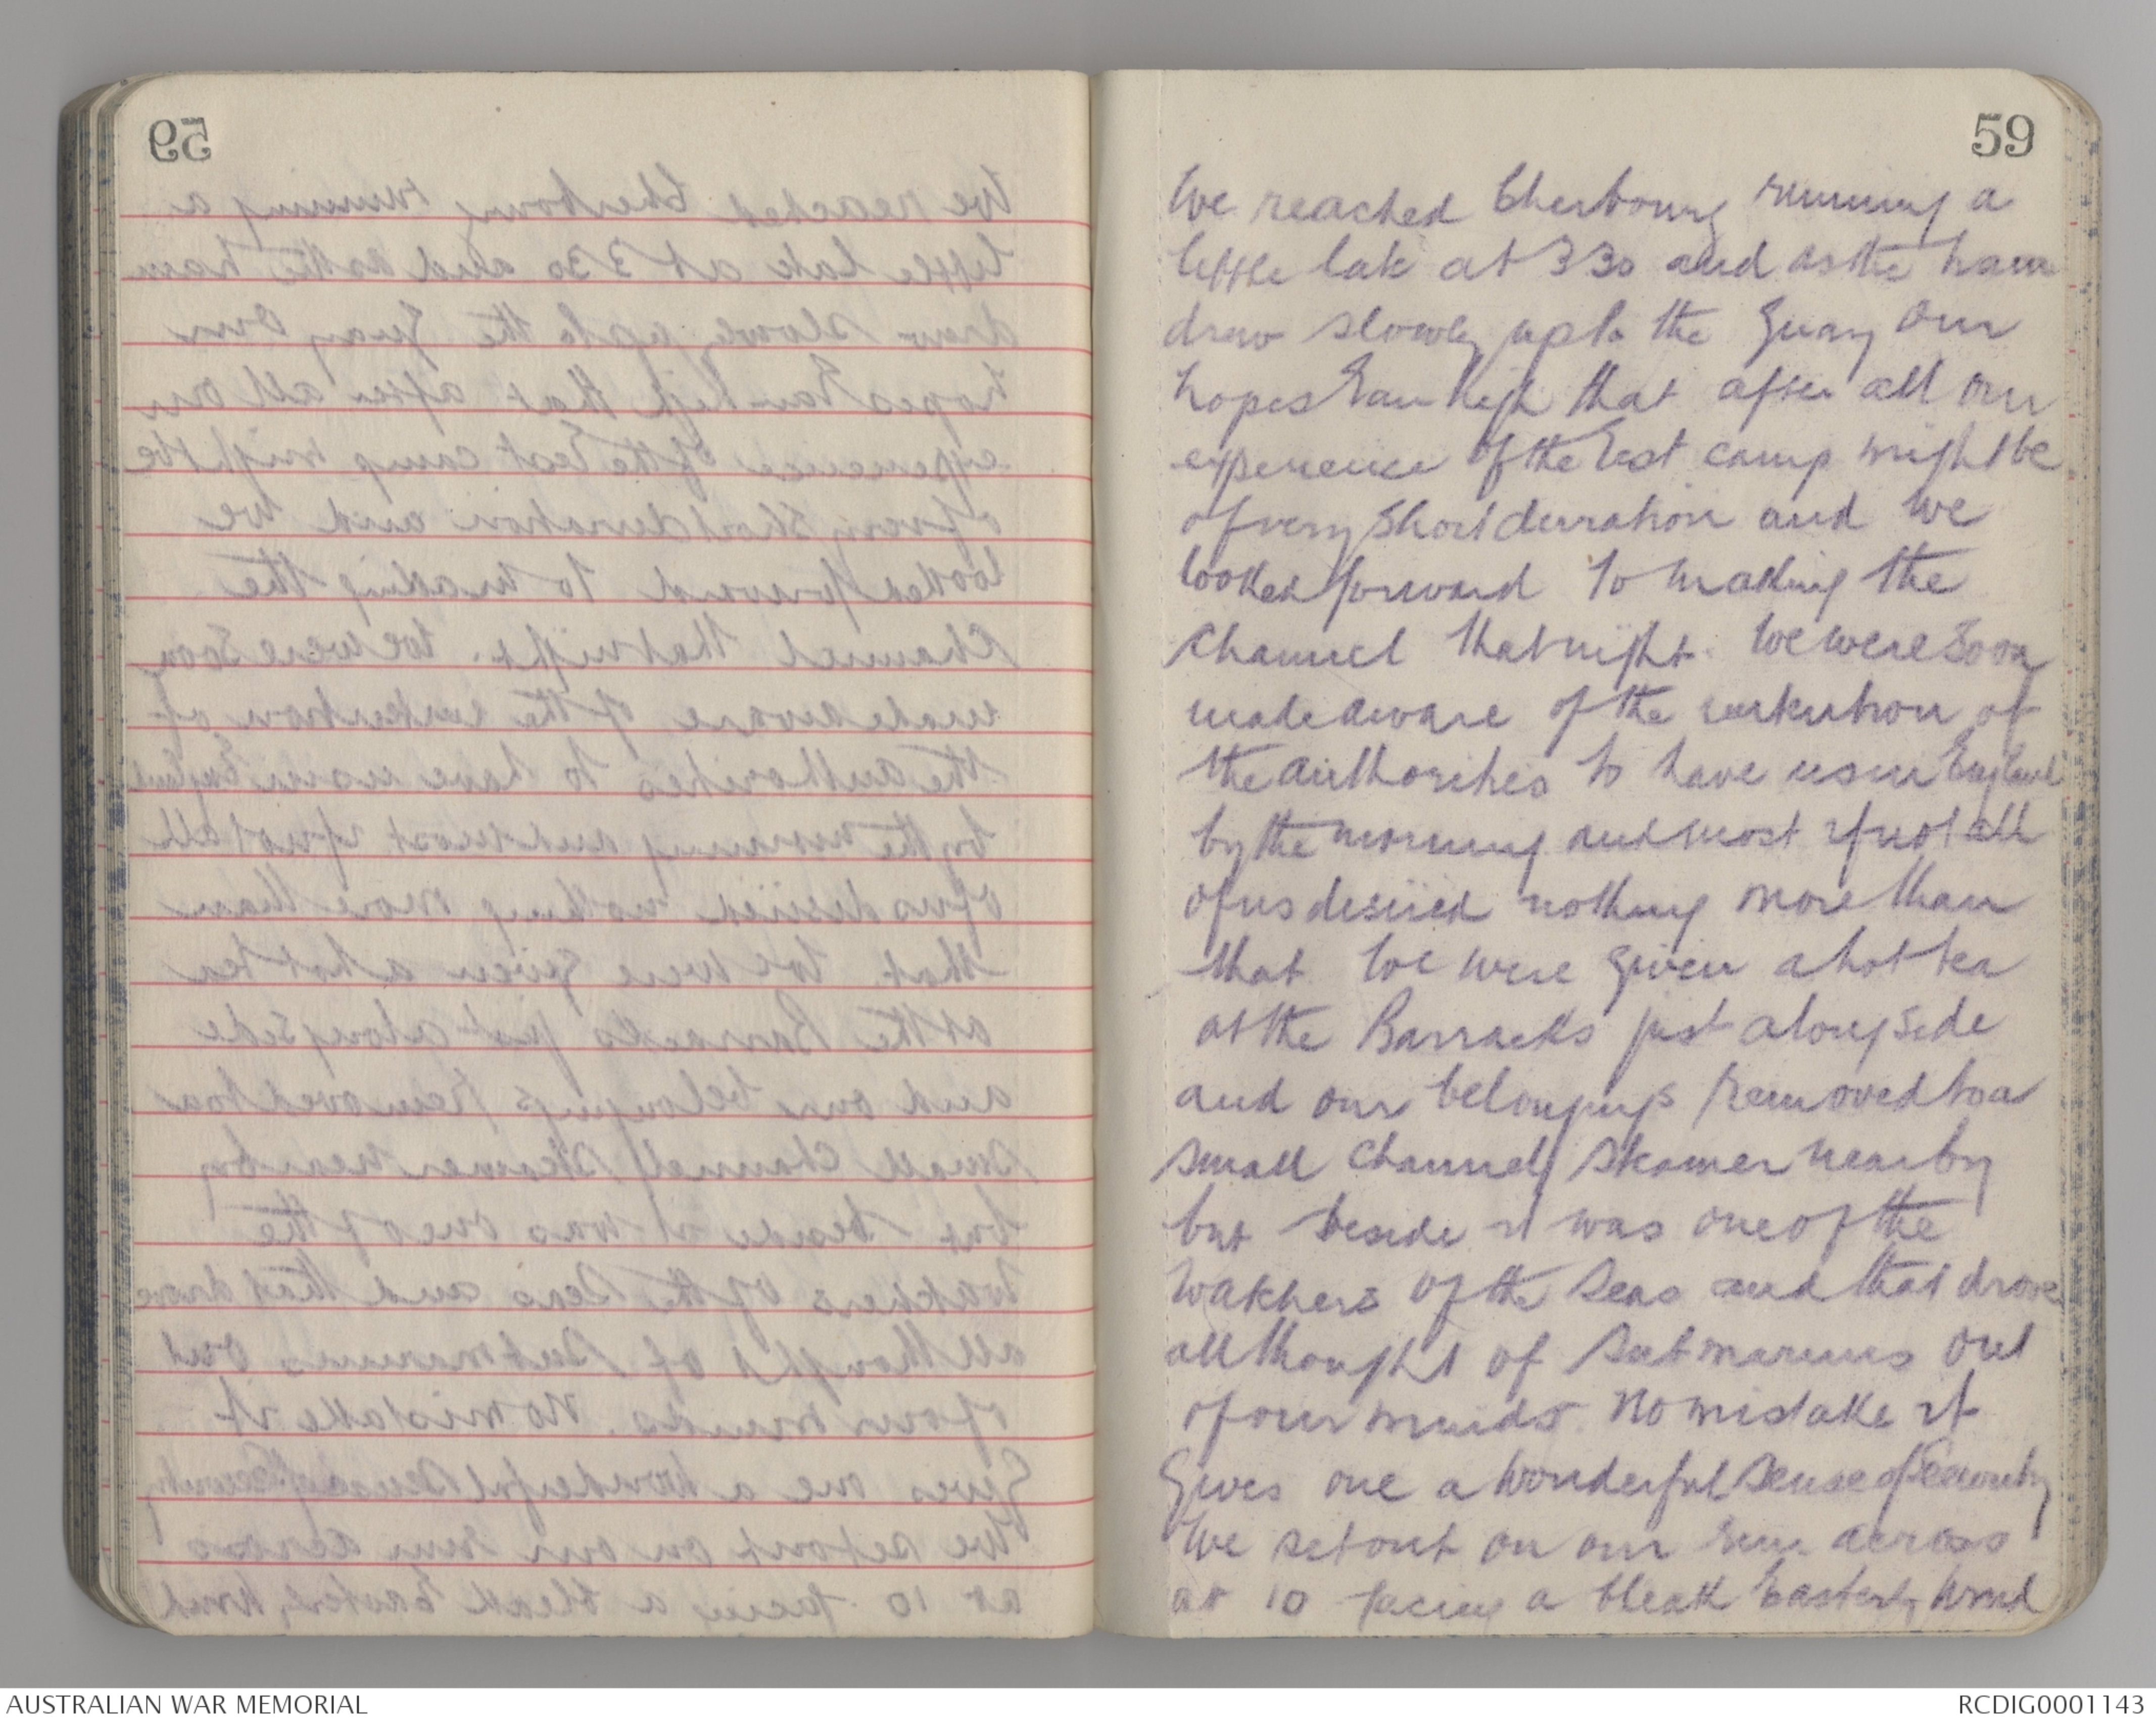 59
We reached Cherbourg running a
little late at 330 and as the train
drew slowly up to the Quay our
hopes ran high that after all our
experience of the rest camp might be
of very short duration and we
looked forward to making the
Channel that night. We were soon
made aware of the intention of
the authorities to have us in England
by the morning and most if not all
of us desired nothing more than
that. We were given a hot tea
at the Barracks just alongside
and our belongings removed to a
small Channel Steamer nearby
but beside it was one of the
Watchers of the Seas and that drove
all thought of Submarines out
of our minds. No mistake it
Gives one a wonderful sense of Security
We set out on our run across
at 10 facing a bleak Easterly wind
AUSTRALIAN WAR MEMORIAL
RCDIG0001143